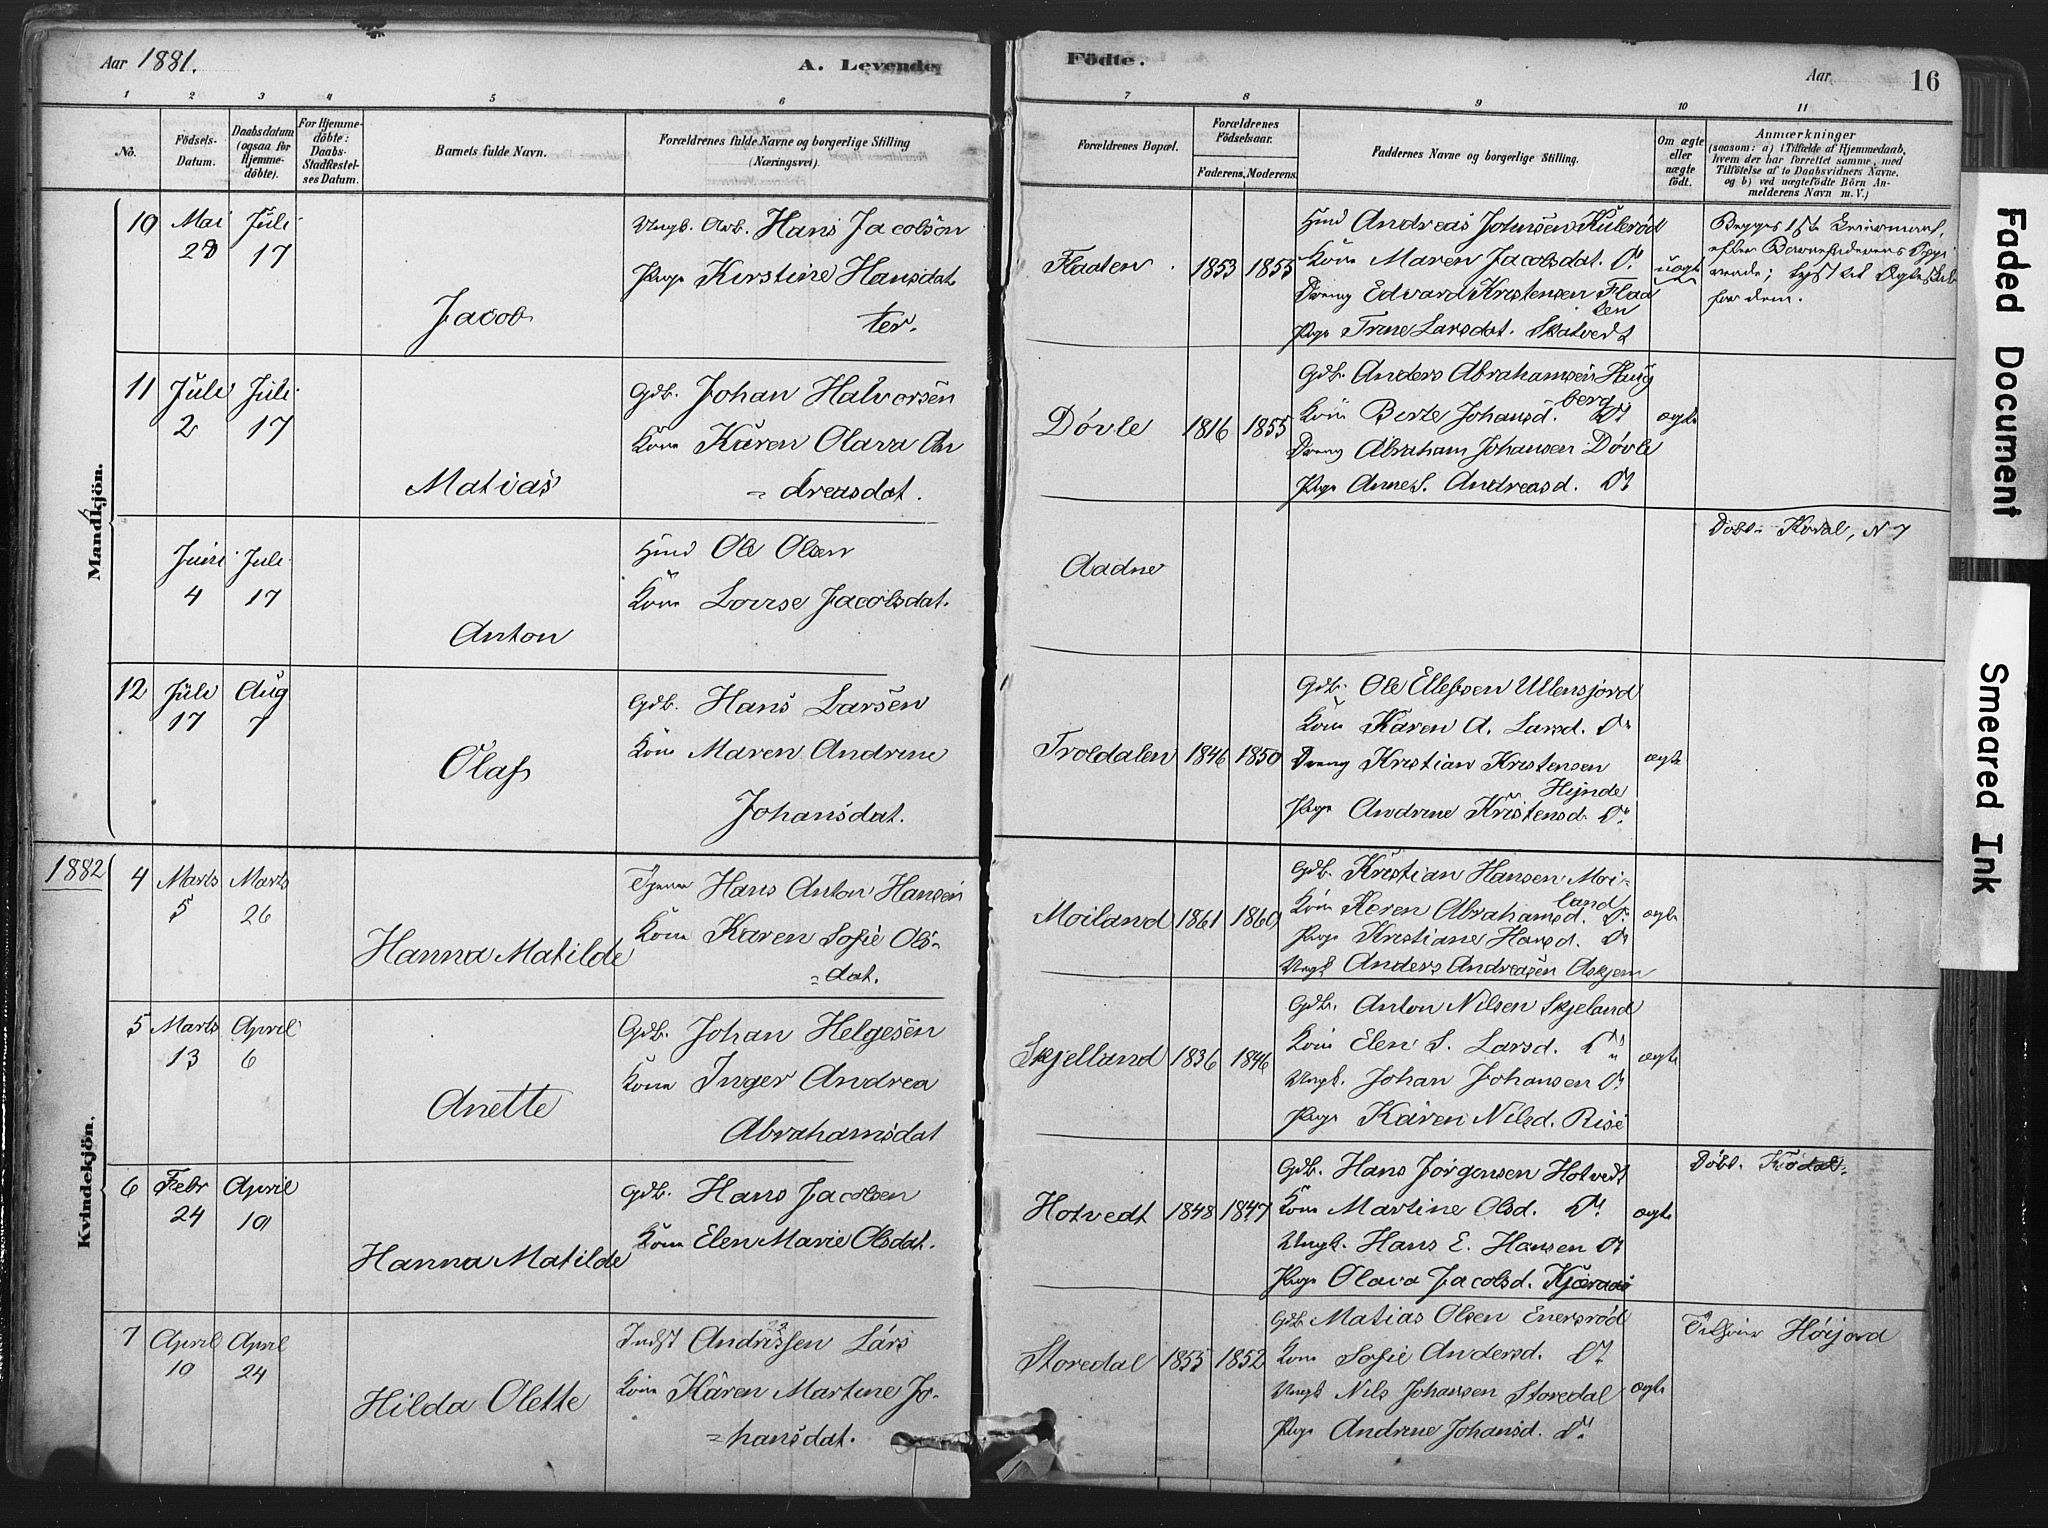 Aar 1881. A. Levende
Födte. Aar 16
1 2 3 4 5 6
7 8 9 10 11
No. Födsels-Datum. Daabsdatum (ogsaa for Hjemme-döbte). For Hjemme-döbte: Daabs-Stadfæstel-ses Datum. Barnets fulde Navn. Forældrenes fulde Navne og borgerlige Stilling (Næringsvei).
Forældrenes Bopæl. Forældrenes Födselsaar. Faderens. Moderens. Faddernes Navne og borgerlige Stilling. Om ægte eller uægte födt. Anmærkninger (saasom: a) i Tilfælde af Hjemmedaab, hvem der har forrettet samme, med Tilföielse af to Daabsvidners Navne. og b) ved uægtefödte Börn An-melderens Navn m. V.)
Mandkjön.
10 Mai 28 Juli 17
Jacob
Ungk. Arb. Hans Jacobsen
Pige Kirstine Hansdat
ter.
Flaaten 1853 1855
Husd Andreas Johnsen Kulerød
Kone Maren Jacobsdat. Do
Dreng Edvard Kristensen Flaa
ten
Pige Trine Larsdat. Skatvedt
uægte
Begges 1ste Leiermaal,
efter Barnefaderens Opgi
vende; lyst til Ægteskab
for dem.
11 Juli 2 Juli 17
Matias
Gdb. Johan Halvorsen
Kone Karen Olava An
= dreasdat.
Døvle 1816 1855
Gdb. Anders Abrahamsen Haug
berg
Kone Berte Johansd. Do
Dreng Abraham Johansen Døvle
Pige Anne S. Andreasd. Do
ægte
Juni 4 Juli 17
Anton
Husd Ole Olsen
Kone Lovise Jacobsdat.
Aadne
Døbt i Kodal, N 7
12 Juli 17 Aug 7
Olaf
Gdb. Hans Larsen
Kone Maren Andrine
Johansdat.
Troldalen 1846 1850
Gdb. Ole Ellefsen Ullensjord
Kone Karen A. Larsd. Do
Dreng Kristian Kristensen
Hynde
Pige Andrine Kristensd. Do
ægte
1882
Kvindekjön.
4 Marts 5 Marts 26
Hanna Matilde
Tjener Hans Anton Hansen
Kone Karen Sofie Ols-
=dat.
Moiland 1861 1860
Gdb. Kristian Hansen Moi-
land
Kone Karen Abrahamsd. Do
Pige Kristiane Hansd. Do
Ungk Anders Andreasen Askjem
ægte
5 Marts 13 April 6
Anette
Gdb. Johan Helgesen
Kone Inger Andrea
Abrahamsdat
Skjelland 1836 1846
Gdb. Anton Nilsen Skjeland
Kone Elen S. Larsd. Do
Ungk. Johan Johansen Do
Pige Karen Nilsd. Rise
ægte
6 Febr 24 April 10
Hanna Matilde
Gdb. Hans Jacobsen
Kone Elen Marie Olsdat.
Hotvedt 1848 1847
Gdb. Hans Jørgensen Hotvedt
Kone Martine Olsd. Do
Ungk. Hans E. Hansen Do
Pige Olava Jacobsd. Kjæraas
ægte
Døbt. Kodal.
7 April 10 April 24
Hilda Olette
Indst Andrissen Lars
Kone Karen Martine Jo-
=hansdat.
Storedal 1855 1852
Gdb. Matias Olsen Enersrød
Kone Sofie Andersd. Do
Ungk Nils Johansen Storedal
Pige Andrine Johansd. Do
ægte
Høijord
Faded Document
Smeared Ink